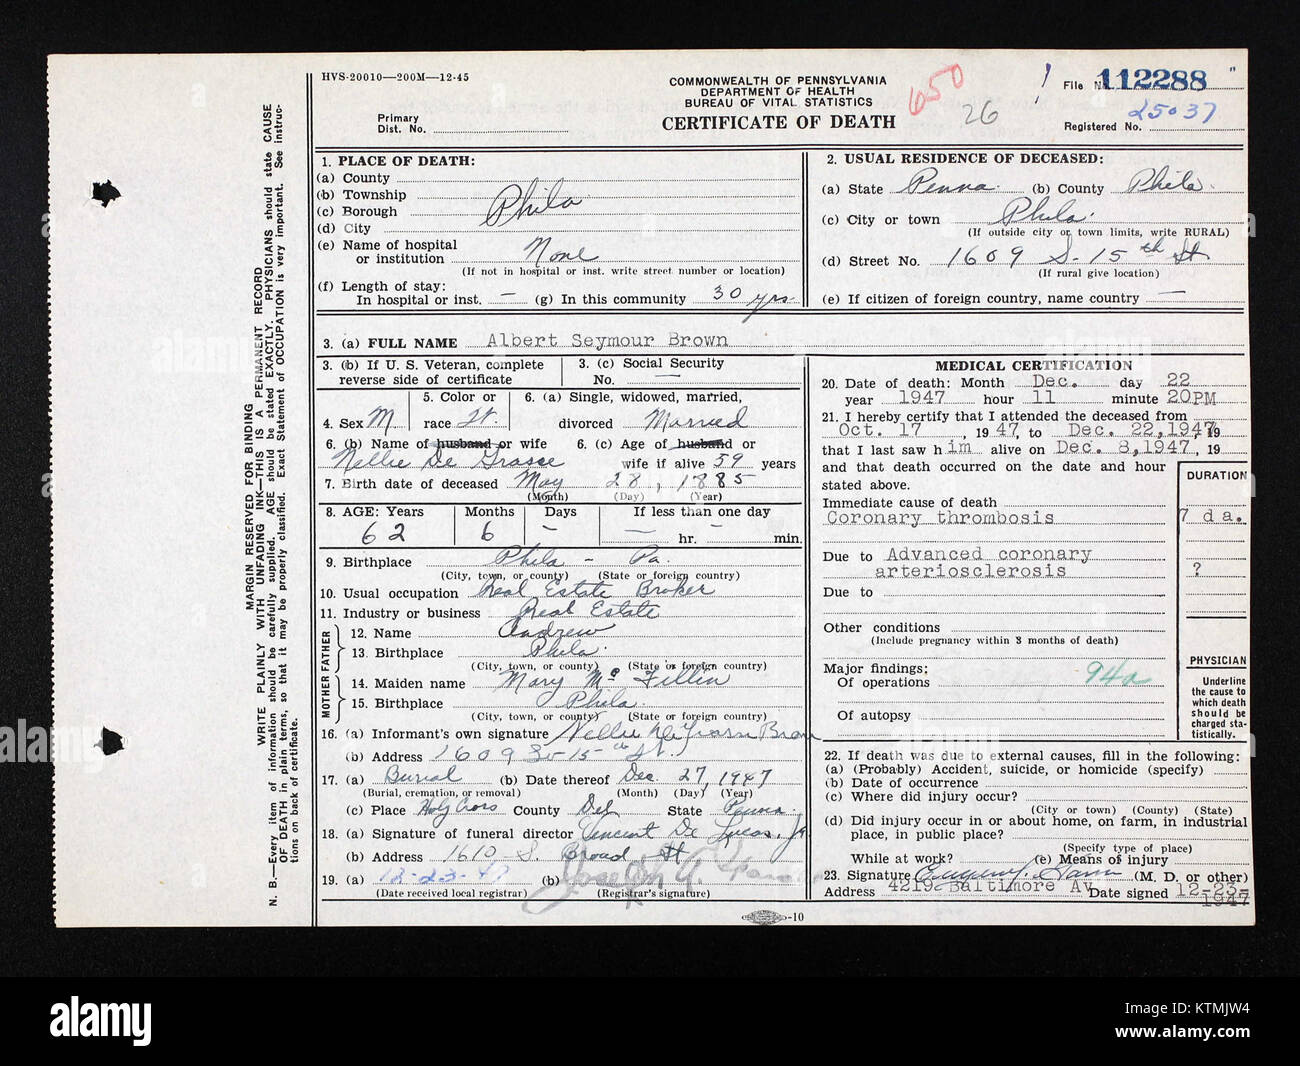 HVS-20010—200M—12-45
COMMONWEALTH OF PENNSYLVANIA
DEPARTMENT OF HEALTH
BUREAU OF VITAL STATISTICS
CERTIFICATE OF DEATH
650
26
File No. 112288
Registered No. 25037
Primary
Dist. No.
MARGIN RESERVED FOR BINDING
WRITE PLAINLY WITH UNFADING INK—THIS IS A PERMANENT RECORD
N. B.—Every item of information should be carefully supplied. AGE should be stated EXACTLY. PHYSICIANS should state CAUSE
OF DEATH in plain terms, so that it may be properly classified. Exact Statement of OCCUPATION is very important. See instruc-
tions on back of certificate.
1. PLACE OF DEATH:
(a) County
(b) Township
(c) Borough
(d) City Phila
(e) Name of hospital
or institution None
(If not in hospital or inst. write street number or location)
(f) Length of stay:
In hospital or inst. — (g) In this community 30 yrs.
2. USUAL RESIDENCE OF DECEASED:
(a) State Penna. (b) County Phila.
(c) City or town Phila.
(If outside city or town limits, write RURAL)
(d) Street No. 1609 S. 15th St
(If rural give location)
(e) If citizen of foreign country, name country —
3. (a) FULL NAME Albert Seymour Brown
3. (b) If U. S. Veteran, complete
reverse side of certificate
3. (c) Social Security
No. —
4. Sex M
5. Color or
race W.
6. (a) Single, widowed, married,
divorced Married
6. (b) Name of husband or wife
Nellie De Grasse
6. (c) Age of husband or
wife if alive 59 years
7. Birth date of deceased May 28, 1885
(Month) (Day) (Year)
8. AGE: Years Months Days If less than one day
62 6 — — hr. — min.
9. Birthplace Phila - Pa.
(City, town, or county) (State or foreign country)
10. Usual occupation Real Estate Broker
11. Industry or business Real Estate
FATHER
12. Name Andrew
13. Birthplace Phila.
(City, town, or county) (State or foreign country)
MOTHER
14. Maiden name Mary Mc Fillin
15. Birthplace Phila.
(City, town, or county) (State or foreign country)
16. (a) Informant's own signature Nellie
(b) Address 1609 So 15th St.
17. (a) Burial (b) Date thereof Dec. 27, 1947
(Burial, cremation, or removal) (Month) (Day) (Year)
(c) Place Holy Cross County Del State Penna.
18. (a) Signature of funeral director Vincent De Lucas, Jr
(b) Address 1610 - S. Broad St
19. (a) 12-23-47 (b) Joseph A.
(Date received local registrar) (Registrar's signature)
MEDICAL CERTIFICATION
20. Date of death: Month Dec. day 22
year 1947 hour 11 minute 20PM
21. I hereby certify that I attended the deceased from
Oct. 17 1947, to Dec. 22,1947, 19
that I last saw him alive on Dec. 8,1947, 19
and that death occurred on the date and hour
stated above.
DURATION
Immediate cause of death
Coronary thrombosis 7 da.
Due to Advanced coronary
arteriosclerosis ?
Due to
Other conditions
(Include pregnancy within 3 months of death)
Major findings:
Of operations 94a
Of autopsy
PHYSICIAN
Underline
the cause to
which death
should be
charged sta-
tistically.
22. If death was due to external causes, fill in the following:
(a) (Probably) Accident, suicide, or homicide (specify)
(b) Date of occurrence
(c) Where did injury occur?
(City or town) (County) (State)
(d) Did injury occur in or about home, on farm, in industrial
place, in public place?
(Specify type of place)
While at work? (e) Means of injury
23. Signature (M. D. or other)
Address 4219 Baltimore Av Date signed 12-23-
1947
-10
alamy
Image ID: KTMJW4
www.alamy.com